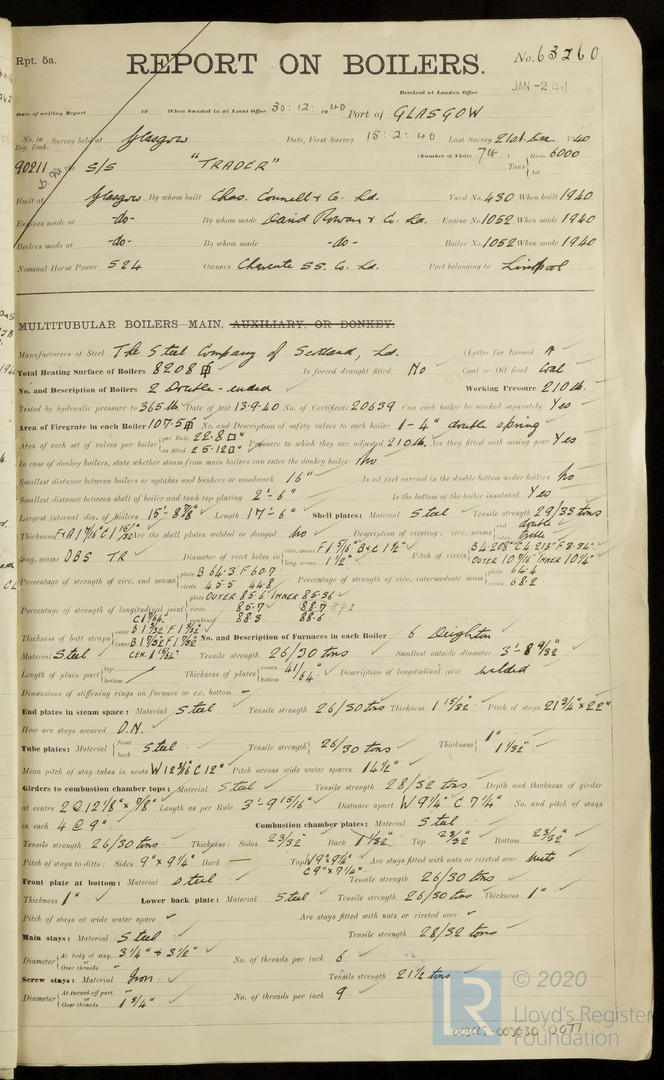 Rpt. 5a.
REPORT ON BOILERS.
No. 63260
Received at London Office
JAN -2 1941
Date of writing Report 19 When handed in at Local Office 30:12:1940 Port of GLASGOW
No. in Reg. Book. Survey held at Glasgow Date, First Survey 15:2:40 Last Survey 21st Dec. 1940
(Number of Visits 74)
90211 S/S "TRADER" Tons Gross 6000 Net
Built at Glasgow By whom built Chas. Connell & Co. Ld. Yard No. 430 When built 1940
Engines made at -do- By whom made David Rowan & Co. Ld. Engine No. 1052 When made 1940
Boilers made at -do- By whom made -do- Boiler No. 1052 When made 1940
Nominal Horse Power 524 Owners Charente SS. Co. Ld. Port belonging to Liverpool
MULTITUBULAR BOILERS—MAIN, AUXILIARY, OR DONKEY.
Manufacturers of Steel The Steel Company of Scotland, Ld. (Letter for Record
Total Heating Surface of Boilers 8208 Is forced draught fitted No Coal or Oil fired Coal
No. and Description of Boilers 2 Double-ended Working Pressure 210 lb.
Tested by hydraulic pressure to 365 lb. Date of test 13-9-40 No. of Certificate 20639 Can each boiler be worked separately Yes
Area of Firegrate in each Boiler 107.5 No. and Description of safety valves to each boiler 1-4" double spring
Area of each set of valves per boiler per Rule 22.8 □" as fitted 25.12 □" Pressure to which they are adjusted 210 lb. Are they fitted with easing gear Yes
In case of donkey boilers, state whether steam from main boilers can enter the donkey boiler No
Smallest distance between boilers or uptakes and bunkers or woodwork 16" Is oil fuel carried in the double bottom under boilers No
Smallest distance between shell of boiler and tank top plating 2'-6" Is the bottom of the boiler insulated Yes
Largest internal dia. of boilers 15'-8 7/8" Length 17'-6" Shell plates: Material Steel Tensile strength 29/33 tons
Thickness F&A 1 7/16" C 1 15/32" Are the shell plates welded or flanged No Description of riveting: circ. seams end double inter. treble
long. seams DBS TR Diameter of rivet holes in circ. seams F 1 5/16" B&C 1 1/2" long. seams 1 1/2" Pitch of rivets B 4.208" C 4.213" F 3.34" OUTER 10 7/16" INNER 10 1/4"
Percentage of strength of circ. end seams plate B 64.3 F 60.7 rivets 45.5 44.8 Percentage of strength of circ. intermediate seam plate 64.4 rivets 68.2
Percentage of strength of longitudinal joint plate OUTER 85.6 INNER 85.36 rivets 85.7 88.7 combined 88.3 88.6
Thickness of butt straps outer B 1 3/32" F 1 3/32" inner B 1 7/32" F 1 7/32" No. and Description of Furnaces in each Boiler 6 Deighton
Material Steel Tensile strength 26/30 tons Smallest outside diameter 3'-8 9/32"
Length of plain part top bottom Thickness of plates crown bottom 41/64" Description of longitudinal joint welded
Dimensions of stiffening rings on furnace or c.c. bottom -
End plates in steam space: Material Steel Tensile strength 26/30 tons Thickness 1 15/32" Pitch of stays 21 3/4" x 22"
How are stays secured D.N.
Tube plates: Material front back Steel Tensile strength 26/30 tons Thickness 1" 1 1/32"
Mean pitch of stay tubes in nests Pitch across wide water spaces 14 1/2"
Girders to combustion chamber tops: Material Steel Tensile strength 28/32 tons Depth and thickness of girder
at centre 2 @ 12 1/8" x 7/8" Length as per Rule 3'-9 15/16" Distance apart W 9 1/4" C 7 1/4" No. and pitch of stays
in each 4 @ 9" Combustion chamber plates: Material Steel
Tensile strength 26/30 tons Thickness: Sides 23/32" Back 1 1/32" Top 23/32" Bottom 23/32"
Pitch of stays to ditto: Sides 9" x 9 1/4" Back — Top W 9" x 9 1/4" C 9" x 7 1/4" Are stays fitted with nuts or riveted over nuts
Front plate at bottom: Material Steel Tensile strength 26/30 tons
Thickness 1" Lower back plate: Material Steel Tensile strength 26/30 tons Thickness 1"
Pitch of stays at wide water space Are stays fitted with nuts or riveted over
Main stays: Material Steel Tensile strength 28/32 tons
Diameter At body of stay, or Over threads 3 1/4" & 3 1/2" No. of threads per inch 6
Screw stays: Material Iron Tensile strength 21 1/2 tons
Diameter At turned off part, or Over threads 1 3/4" No. of threads per inch 9
© 2020
Lloyd's Register
Foundation